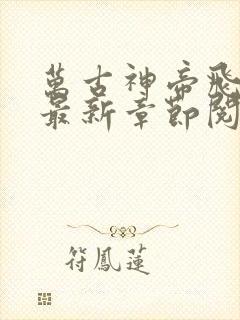 萬古神帝飛
最新章節閱
符鳳蓮